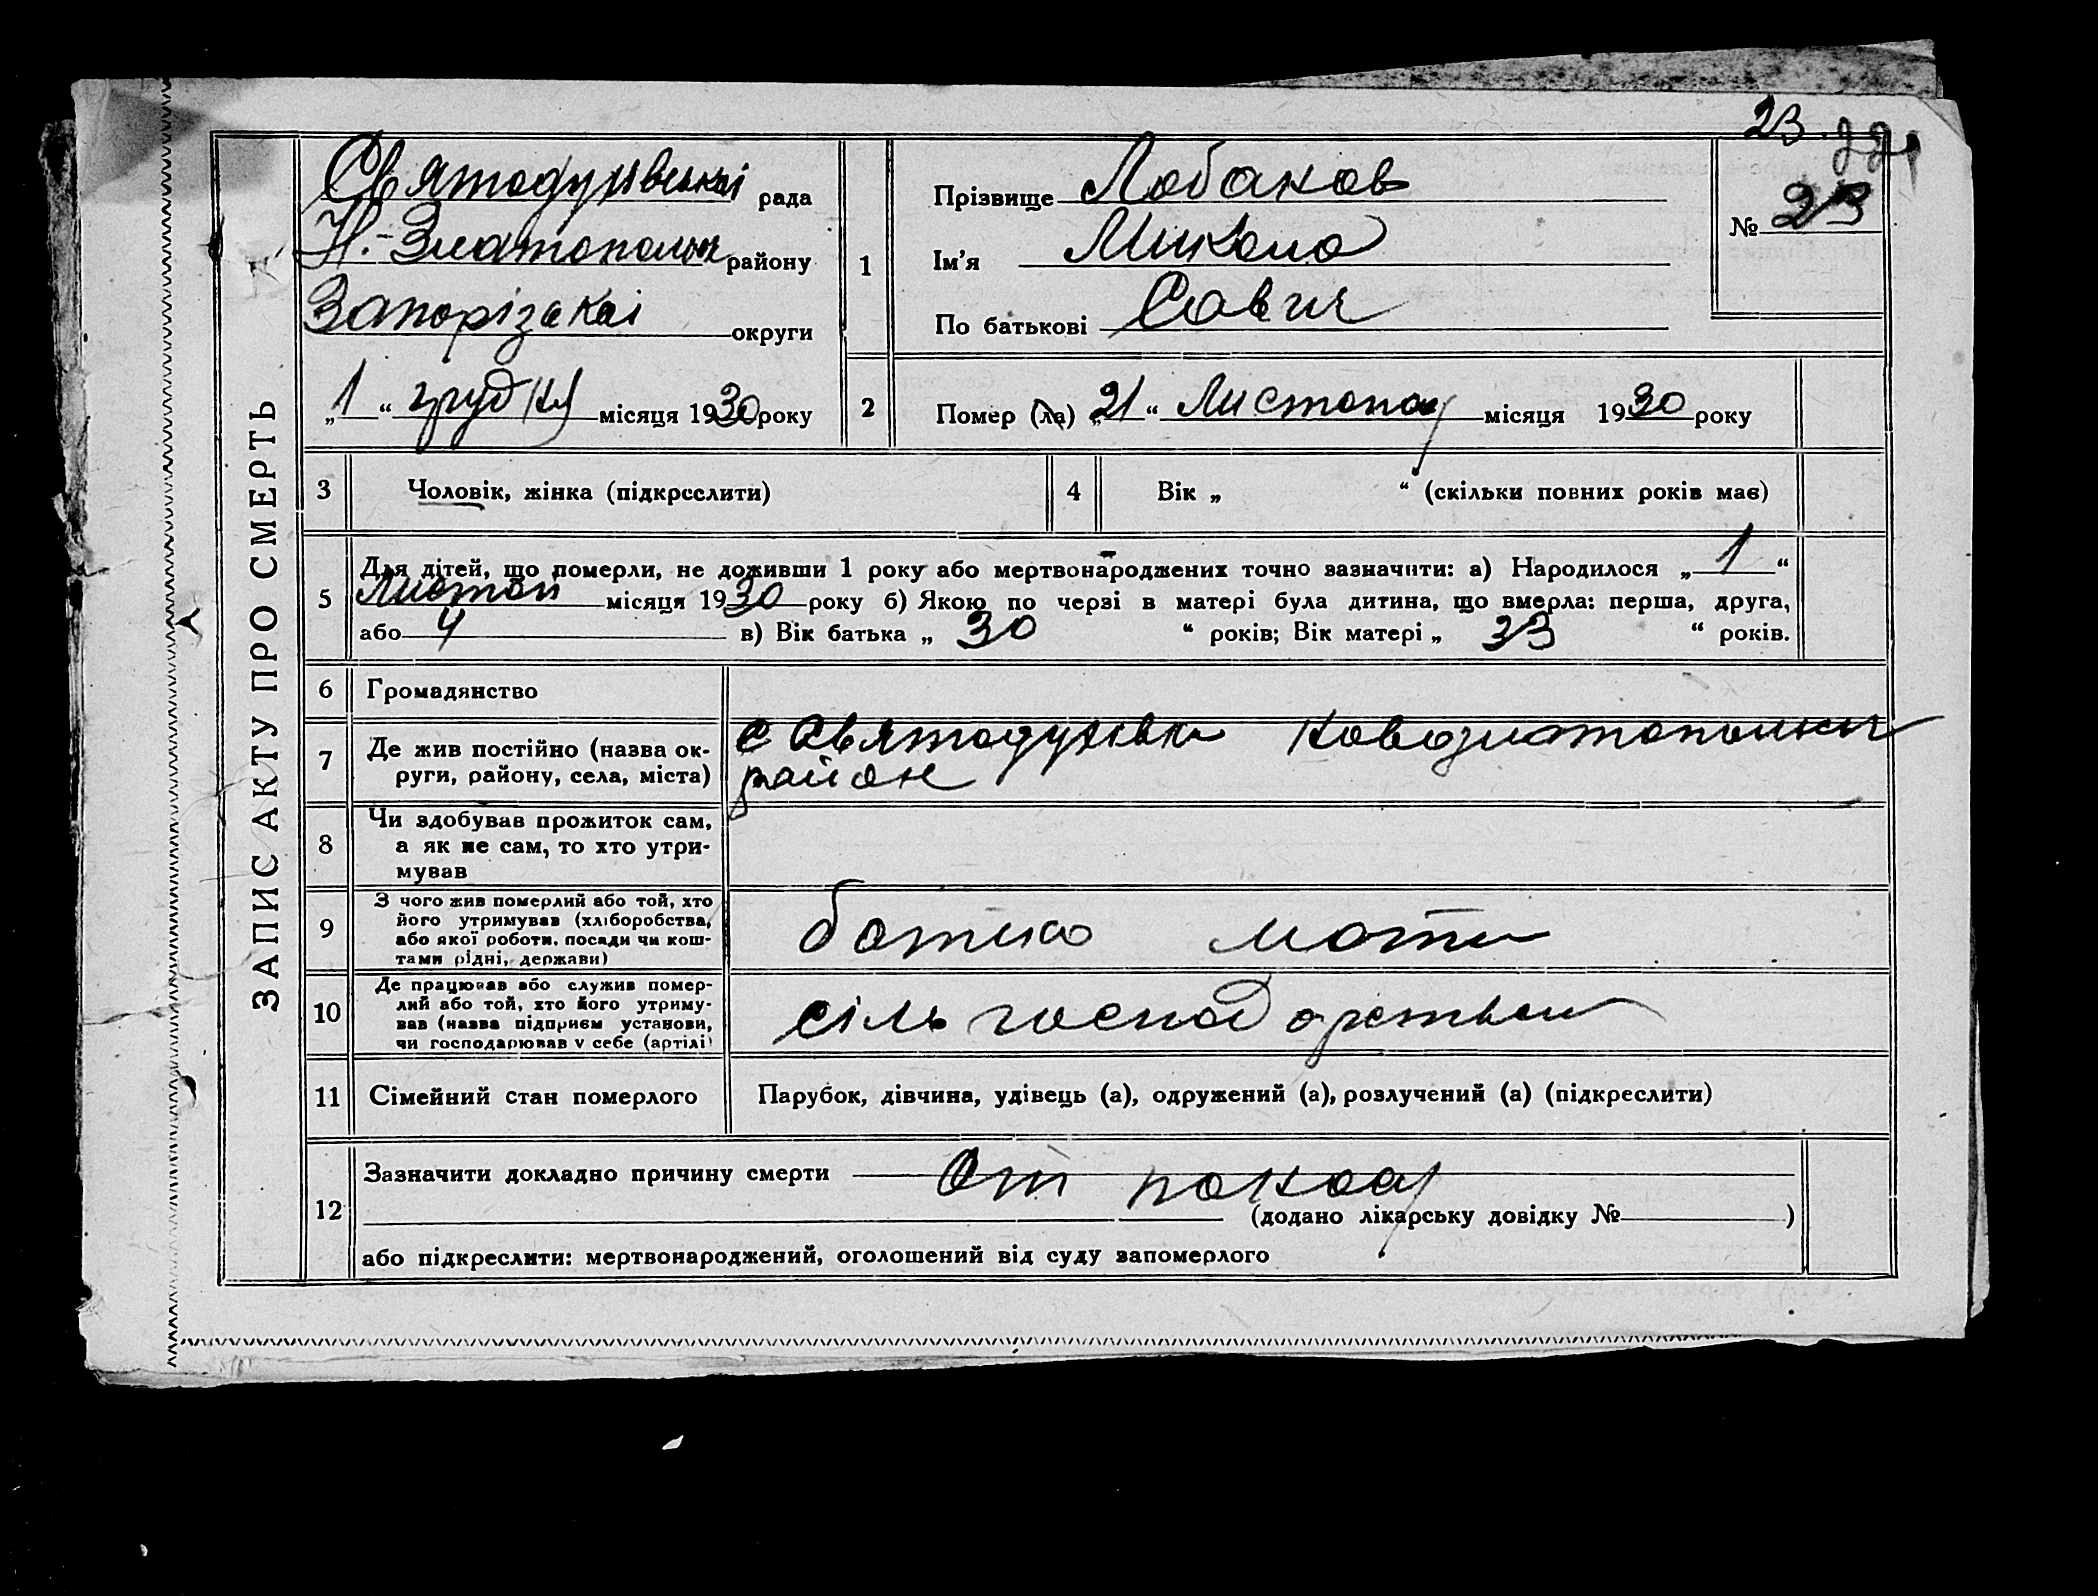 23
ЗАПИС АКТУ ПРО СМЕРТЬ
Святодухівськоі рада
Н.-Златопольск району
Запорізскоі округи
„1“ грудня місяця 1930 року
1
Прізвище Лобанов
Ім'я Микола
По батькові Савич
№ 23
2
Помер (ла) „21“ Листопад місяця 1930 року
3
Чоловік, жінка (підкреслити)
4
Вік „ “ (скільки повних років має)
5
Для дітей, що померли, не доживши 1 року або мертвонароджених точно зазначити: а) Народилося „1“
Листоп місяця 1930 року б) Якою по черзі в матері була дитина, що вмерла: перша, друга,
або 4 в) Вік батька „ 30 “ років; Вік матері „ 33 “ років.
6
Громадянство
7
Де жив постійно (назва ок-
руги, району, села, міста)
с Святодухівка Новозлатопольски
район
8
Чи здобував прожиток сам,
а як не сам, то хто утри-
мував
9
З чого жив померлий або той, хто
його утримував (хліборобства,
або якої роботи, посади чи кош-
тами рідні, держави)
батько мати
10
Де працював або служив помер-
лий або той, хто його утриму-
вав (назва підприєм установи,
чи господарював у себе (артілі)
сіль господ
11
Сімейний стан померлого
Парубок, дівчина, удівець (а), одружений (а), розлучений (а) (підкреслити)
12
Зазначити докладно причину смерти От
(додано лікарську довідку № )
або підкреслити: мертвонароджений, оголошений від суду запомерлого